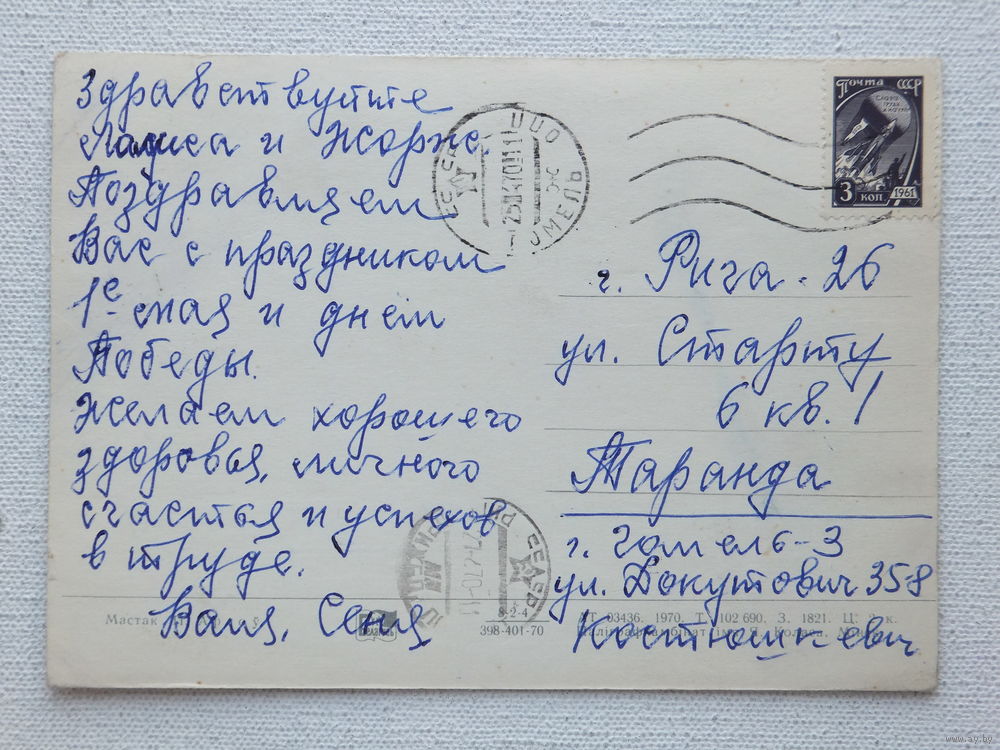 Здравствуйте
Лариса и Жорж.
Поздравляем
Вас с праздником
1е мая и днем
Победы.
Желаем хорошего
здоровья, личного
счастья и успехов
в труде.
Ваня, Сеня
Почта СССР
3 коп 1961
г. Рига-26
ул. Старту
6 кв. 1
Таранда
г. Гомель-3
ул. Докутович 358
Костюшкевич
Мастак
АТ 03436. 1970. 102 690. З. 1821.
398-401-70
8-2-4
www.ay.by